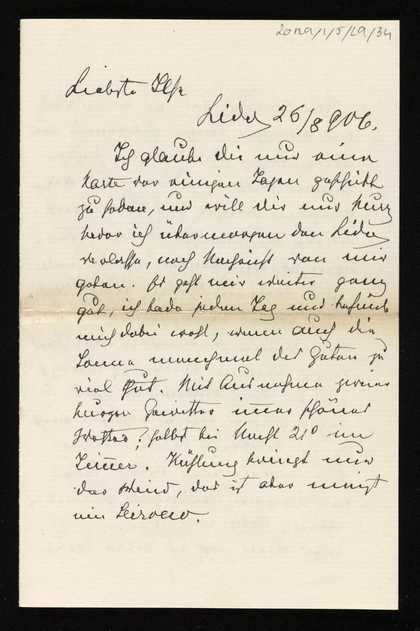 2029/1/5/29/34
Liebste Ilse
Lido 26/8 906.
Ich glaube dir nur eine
Karte vor einigen Tagen geschickt
zu haben, und will dir nur kurz
bevor ich übermorgen den Lido
verlasse, noch Nachricht von mir
geben. Es geht mir weiter ganz
gut, ich bade jeden Tag und befinde
mich dabei wohl, wenn auch die
Sonne manchmal des Guten zu
viel thut. Mit Ausnahme zweier
kurzer Gewitter immer schönes
Wetter, selbst bei Nacht 21° im
Zimmer. Kühlung bringt nur
der Wind, das ist aber meist
ein Scirocco.